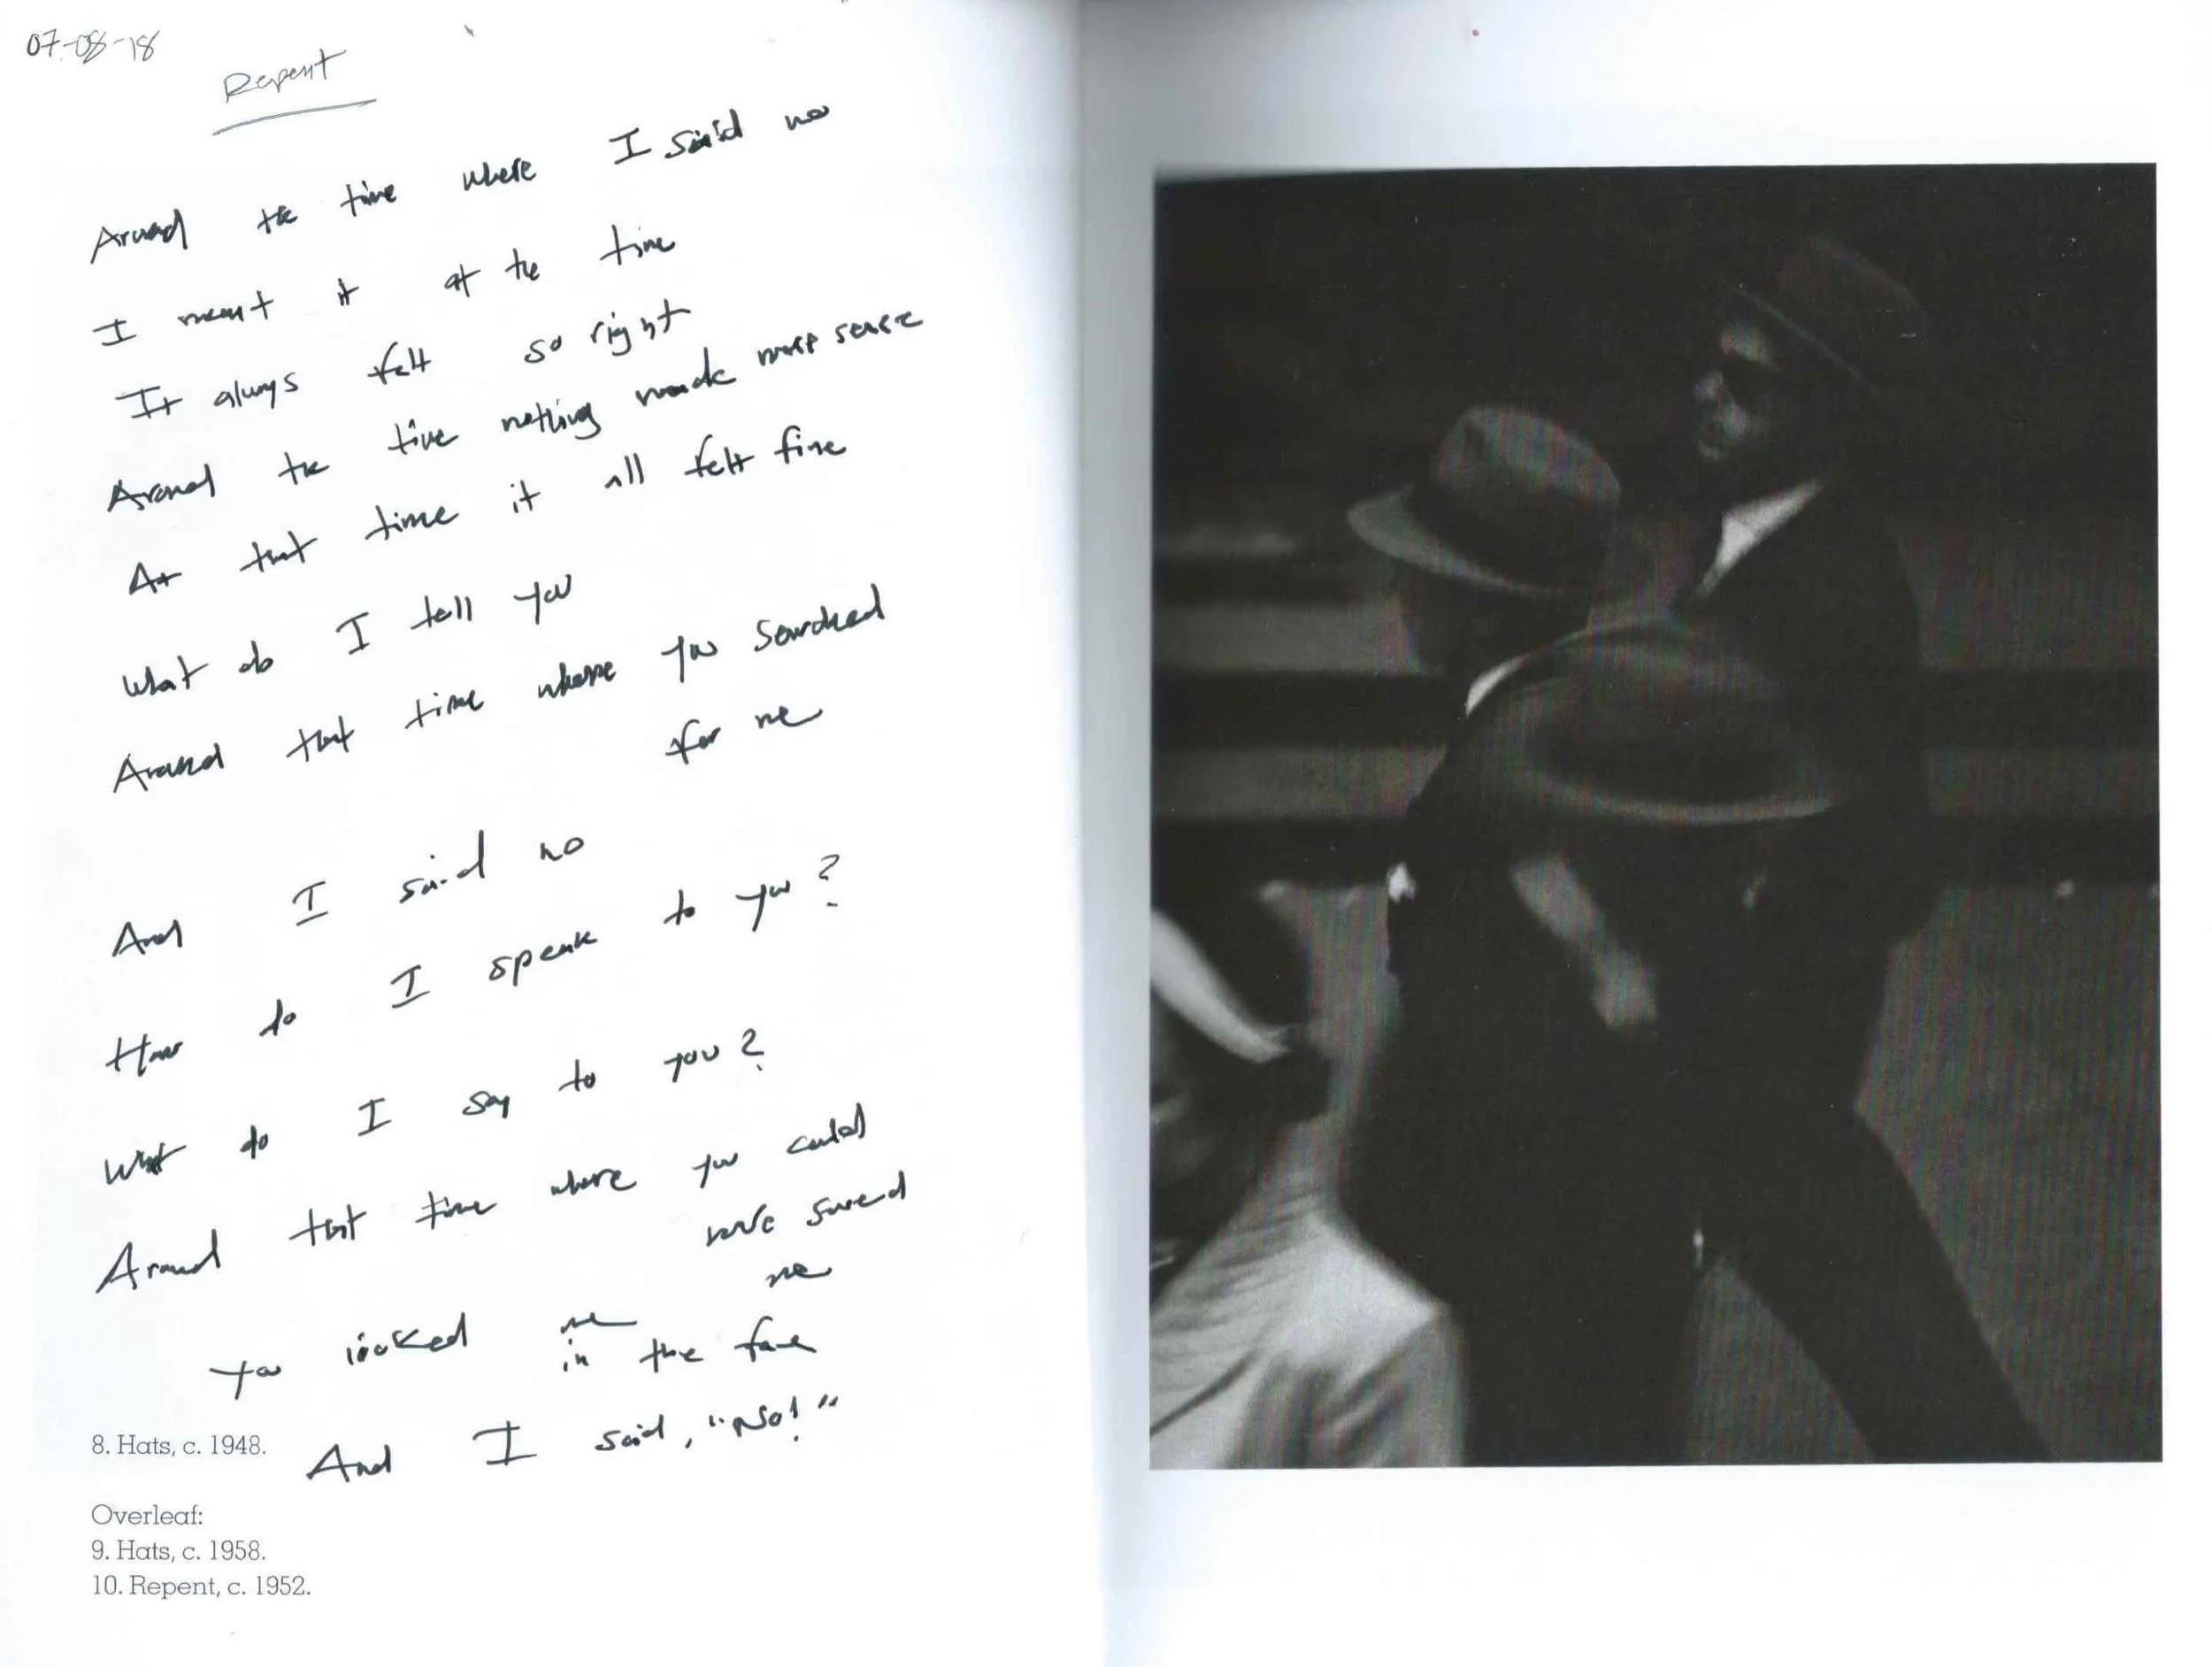 07-08-18
Repent
Around the time where I said no
I meant it at the time
It always felt so right
Around the time nothing made more sense
At that time it all felt fine
What do I tell you
Around that time where you searched
for me
And I said no
How do I speak to you?
What do I say to you?
Around that time where you could
have saved
me
You looked me
in the face
And I said, "No!"
8. Hats, c. 1948.
Overleaf:
9. Hats, c. 1958.
10. Repent, c. 1952.